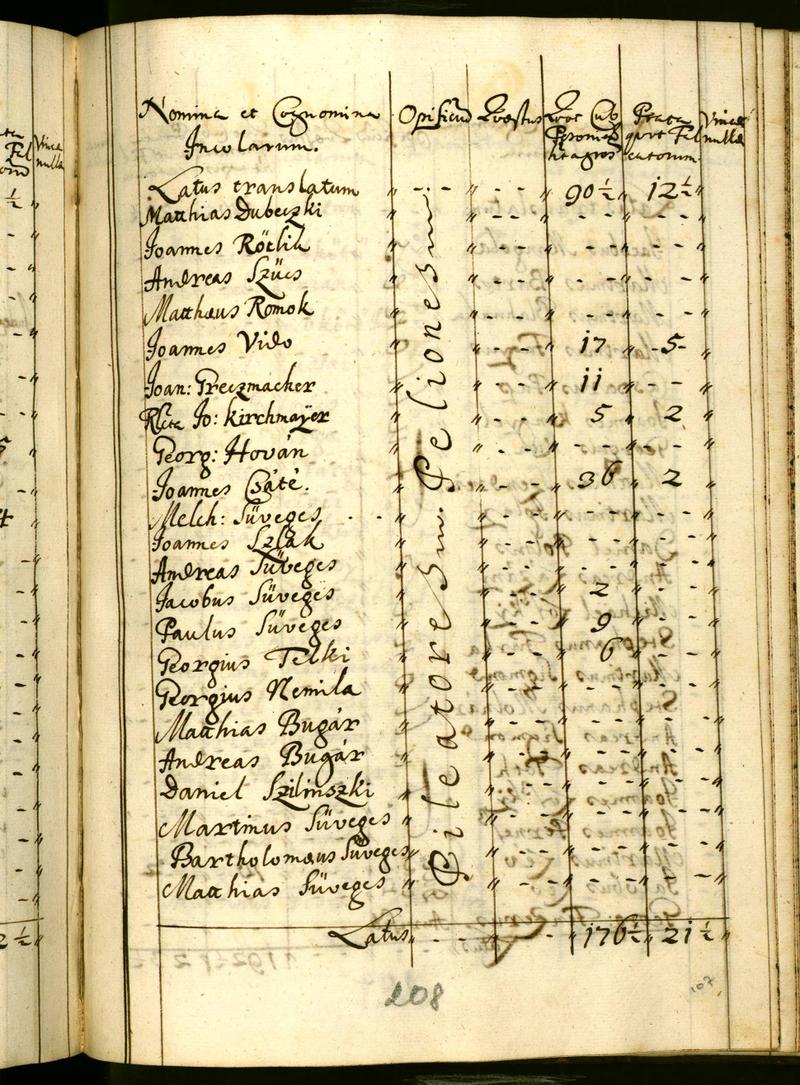 Nomina et Cognomina Incolarum. Opificiu Quæstus Quot Cub Poson: Prata quot Fal catorum Vineæ nullæ
Latus translatum " - - " - - " 90½ " 12½ "
Matthias Dubeczki " " - - " - - " - - "
Joannes Röchk " " - - " - - " - - "
Andreas Szücs " " - - " - - " - - "
Matthæus Romok " " - - " - - " - - "
Joannes Vido " " - - " 17 " - 5 - "
Joan: Preczmacher " " - - " 11 " - - "
Rlta Jo: Kirchmayer " " - - " 5 " 2 "
Georg: Hován " " - - " - - " - - "
Joannes Csáté. " " - - " 36 " 2 "
Melch: Süveges " " - - " - - " - - "
Joannes Szlák " " - - " - - " - - "
Andreas Süveges " " - - " - - " - - "
Jacobus Süveges " " - - " 2 " - - "
Paulus Süveges " " - - " 9 " - - "
Georgius Telki " " - - " 6 " - - "
Georgius Nemila " " - - " - - " - - "
Matthias Bugár " " - - " - - " - - "
Andreas Bugár " " - - " - - " - - "
Daniel Szilinszki " " - - " - - " - - "
Martinus Süveges " " - - " - - " - - "
Bartholomæus Süveges " " - - " - - " - - "
Matthias Süveges " " - - " - - " - - "
Pileatores Peliones
Latus " - - " - - " 176½ " 21½ "
208
107